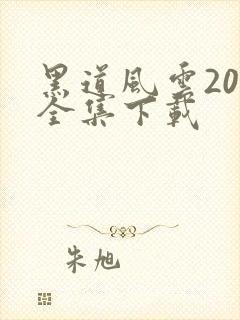 黑道風雲20
全集下載
朱旭